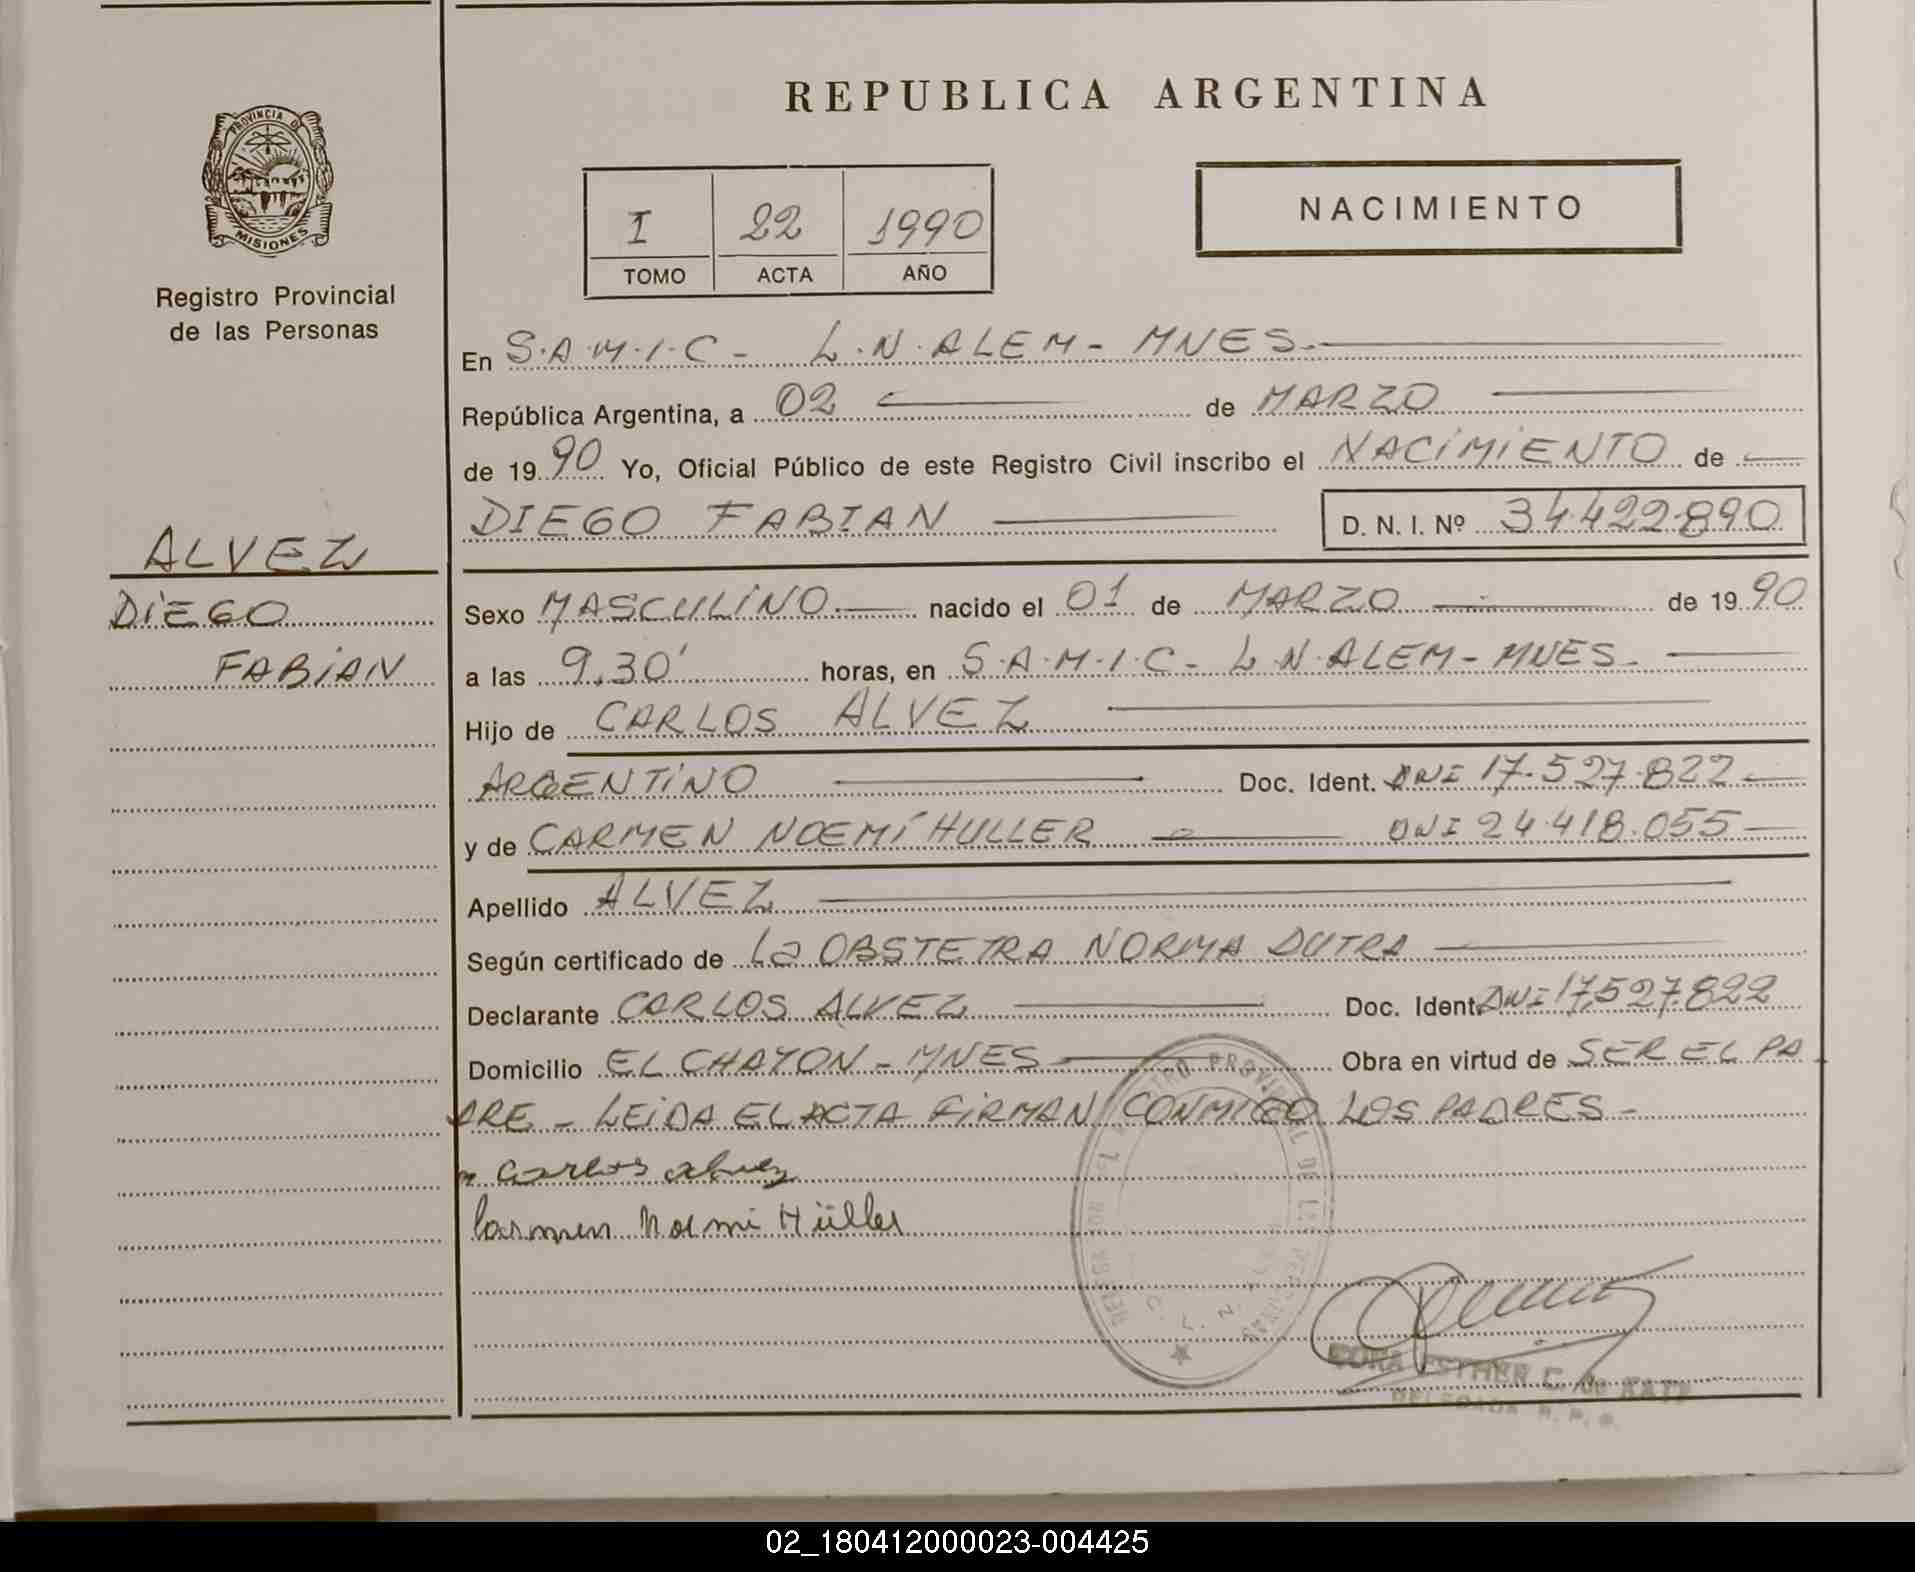 REPUBLICA ARGENTINA
PROVINCIA DE
MISIONES
Registro Provincial
de las Personas
I 22 1990
TOMO ACTA AÑO
NACIMIENTO
En S.A.M.I.C - L.N. ALEM - MNES.
República Argentina, a 02 de MARZO
de 1990 Yo, Oficial Público de este Registro Civil inscribo el NACIMIENTO de
DIEGO FABIAN D. N. I. Nº 34.422.890
ALVEZ
DIEGO
FABIAN
Sexo MASCULINO nacido el 01 de MARZO de 1990
a las 9,30' horas, en S.A.M.I.C - L.N. ALEM - MNES -
Hijo de CARLOS ALVEZ
ARGENTINO Doc. Ident. DNI 17.527.822
y de CARMEN NOEMÍ HULLER DNI 24.418.055
Apellido ALVEZ
Según certificado de La OBSTETRA NORMA DUTRA
Declarante CARLOS ALVEZ Doc. Ident. DNI 17.527.822
Domicilio EL CHATON - MNES Obra en virtud de SER EL PA
DRE - LEIDA EL ACTA FIRMAN CONMIGO LOS PADRES -
Carlos alvez
Carmen Noemi Hüller
REGISTRO PROVINCIAL DE LAS PERSONAS
ESTHER C. de
DELEGADA R. P. P.
02_180412000023-004425